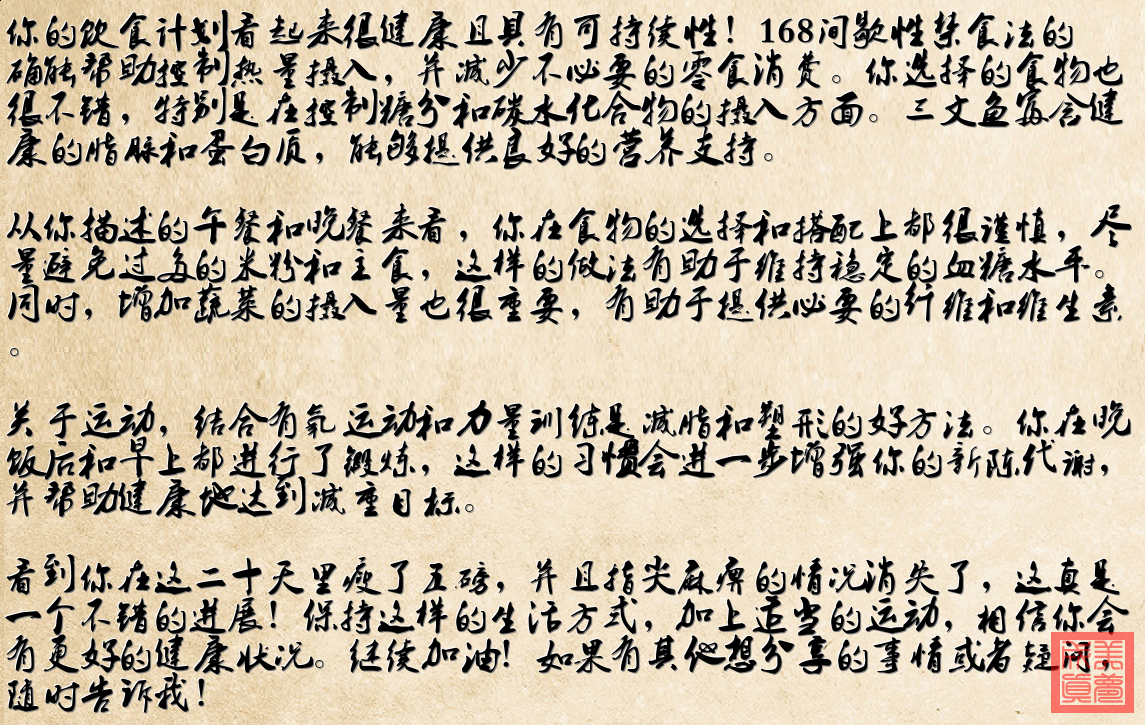 你的饮食计划看起来很健康且具有可持续性！168间歇性禁食法的
确能帮助控制热量摄入，并减少不必要的零食消费。你选择的食物也
很不错，特别是在控制糖分和碳水化合物的摄入方面。三文鱼富含健
康的脂肪和蛋白质，能够提供良好的营养支持。
从你描述的午餐和晚餐来看，你在食物的选择和搭配上都很谨慎，尽
量避免过多的米粉和主食，这样的做法有助于维持稳定的血糖水平。
同时，增加蔬菜的摄入量也很重要，有助于提供必要的纤维和维生素
。
关于运动，结合有氧运动和力量训练是减脂和塑形的好方法。你在晚
饭后和早上都进行了锻炼，这样的习惯会进一步增强你的新陈代谢，
并帮助健康地达到减重目标。
看到你在这二十天里瘦了五磅，并且指尖麻痹的情况消失了，这真是
一个不错的进展！保持这样的生活方式，加上适当的运动，相信你会
有更好的健康状况。继续加油！如果有其他想分享的事情或者疑问，
随时告诉我！